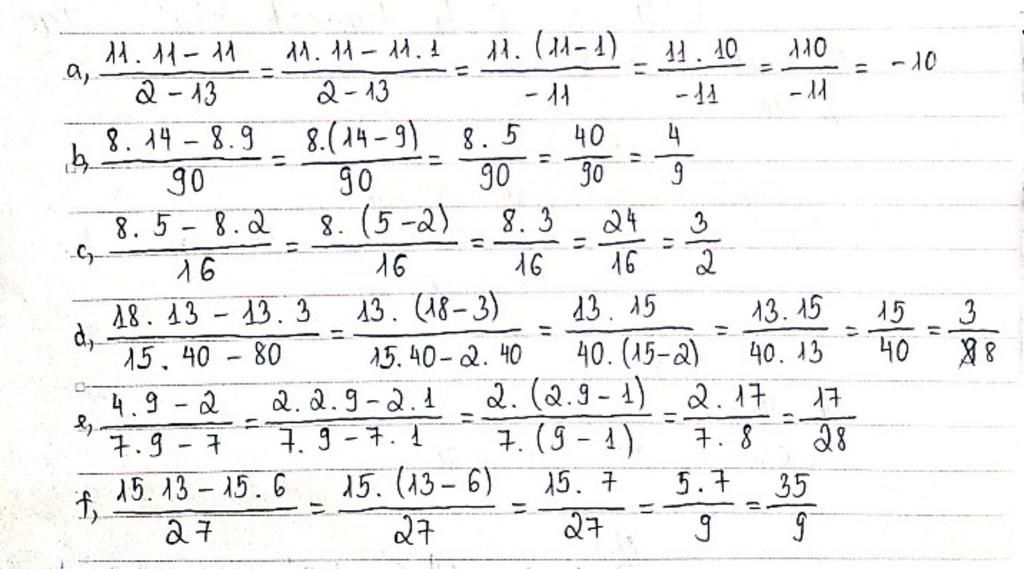 a, (11 . 11 − 11)/(2 − 13) = (11 . 11 − 11 . 1)/(2 − 13) = (11 . (11 − 1))/(−11) = (11 . 10)/(−11) = 110/(−11) = −10
b, (8 . 14 − 8 . 9)/90 = (8.(14 − 9))/90 = (8 . 5)/90 = 40/90 = 4/9
c, (8 . 5 − 8 . 2)/16 = (8 . (5 − 2))/16 = (8 . 3)/16 = 24/16 = 3/2
d, (18 . 13 − 13 . 3)/(15 . 40 − 80) = (13 . (18 − 3))/(15 . 40 − 2 . 40) = (13 . 15)/(40 . (15 − 2)) = (13 . 15)/(40 . 13) = 15/40 = 3/8
e, (4 . 9 − 2)/(7 . 9 − 7) = (2 . 2 . 9 − 2 . 1)/(7 . 9 − 7 . 1) = (2 . (2 . 9 − 1))/(7 . (9 − 1)) = (2 . 17)/(7 . 8) = 17/28
f, (15 . 13 − 15 . 6)/27 = (15 . (13 − 6))/27 = (15 . 7)/27 = (5 . 7)/9 = 35/9